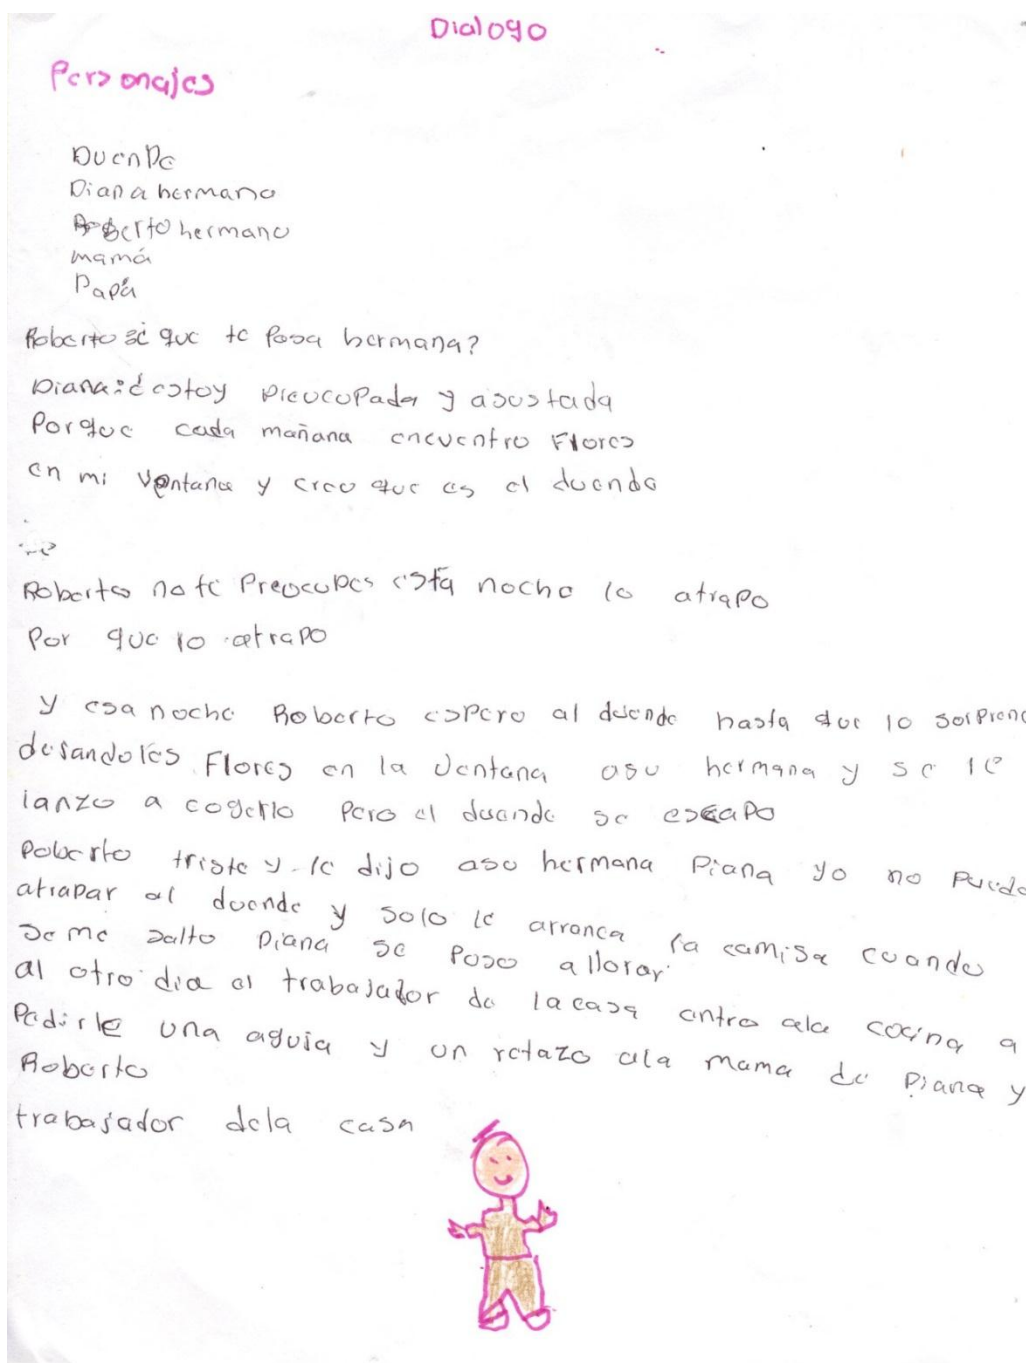 Dialogo
Personajes
Duende
Diana hermana
Roberto hermano
mamá
Papá
Roberto: ¿ que te Pasa hermana?
Diana: estoy preocupada y asustada
Porque cada mañana encuentro Flores
en mi ventana y creo que es el duende
Roberto no te Preocupes está noche lo atrapo
Por que lo atrapo
y esa noche Roberto espero al duende hasta que lo sorprend
desandoles Flores en la ventana asu hermana y se le
lanzo a cogerlo Pero el duende se escapo
Roberto triste y le dijo asu hermana Diana yo no puede
atrapar al duende y solo le arranca la camisa cuando
se me salto Diana se poso allorar
al otro dia el trabajador de la casa entro ala cocina a
Pedirle una aguia y un retazo ala mama de Diana y
Roberto
trabajador dela casa